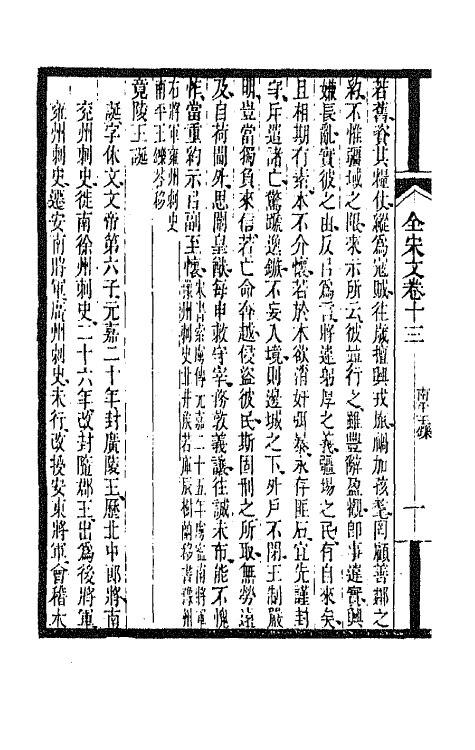 全宋文卷十三
南平王鑠
一
若舊資其糧仗縱爲寇賊往歲擅興戎旅禍加孩耄罔顧善鄰之
約不惟疆域之限來示所云彼並行之雖豐辭盈觀即事違實興
嫌長亂實彼之由反以爲言將違躬厚之義疆埸之民有自來矣
且相期有素本不介懷若於本欲消奸弭暴永存匪石宜先謹封
守斥遣諸亡驚蹤逸鏃不妄入境則邊城之下外戶不閉王制嚴
明豈當獨負來信若亡命奔越侵盜彼民斯固刑之所取無勞遠
及自荷閫外思闡皇猷每申敕守宰務敦義讓往誠未布能不愧
怍當重約示以副至懷宋書索虜傳元嘉二十五年虜寇南將軍豫州刺史北井侯若庫辰樹蘭移書豫州
右將軍豫州刺史南平王鑠答移
竟陵王誕
誕字休文文帝第六子元嘉二十年封廣陵王歷北中郎將南
兖州刺史徙南徐州刺史二十六年改封隨郡王出爲後將軍
雍州刺史遷安南將軍廣州刺史未行改授安東將軍會稽太